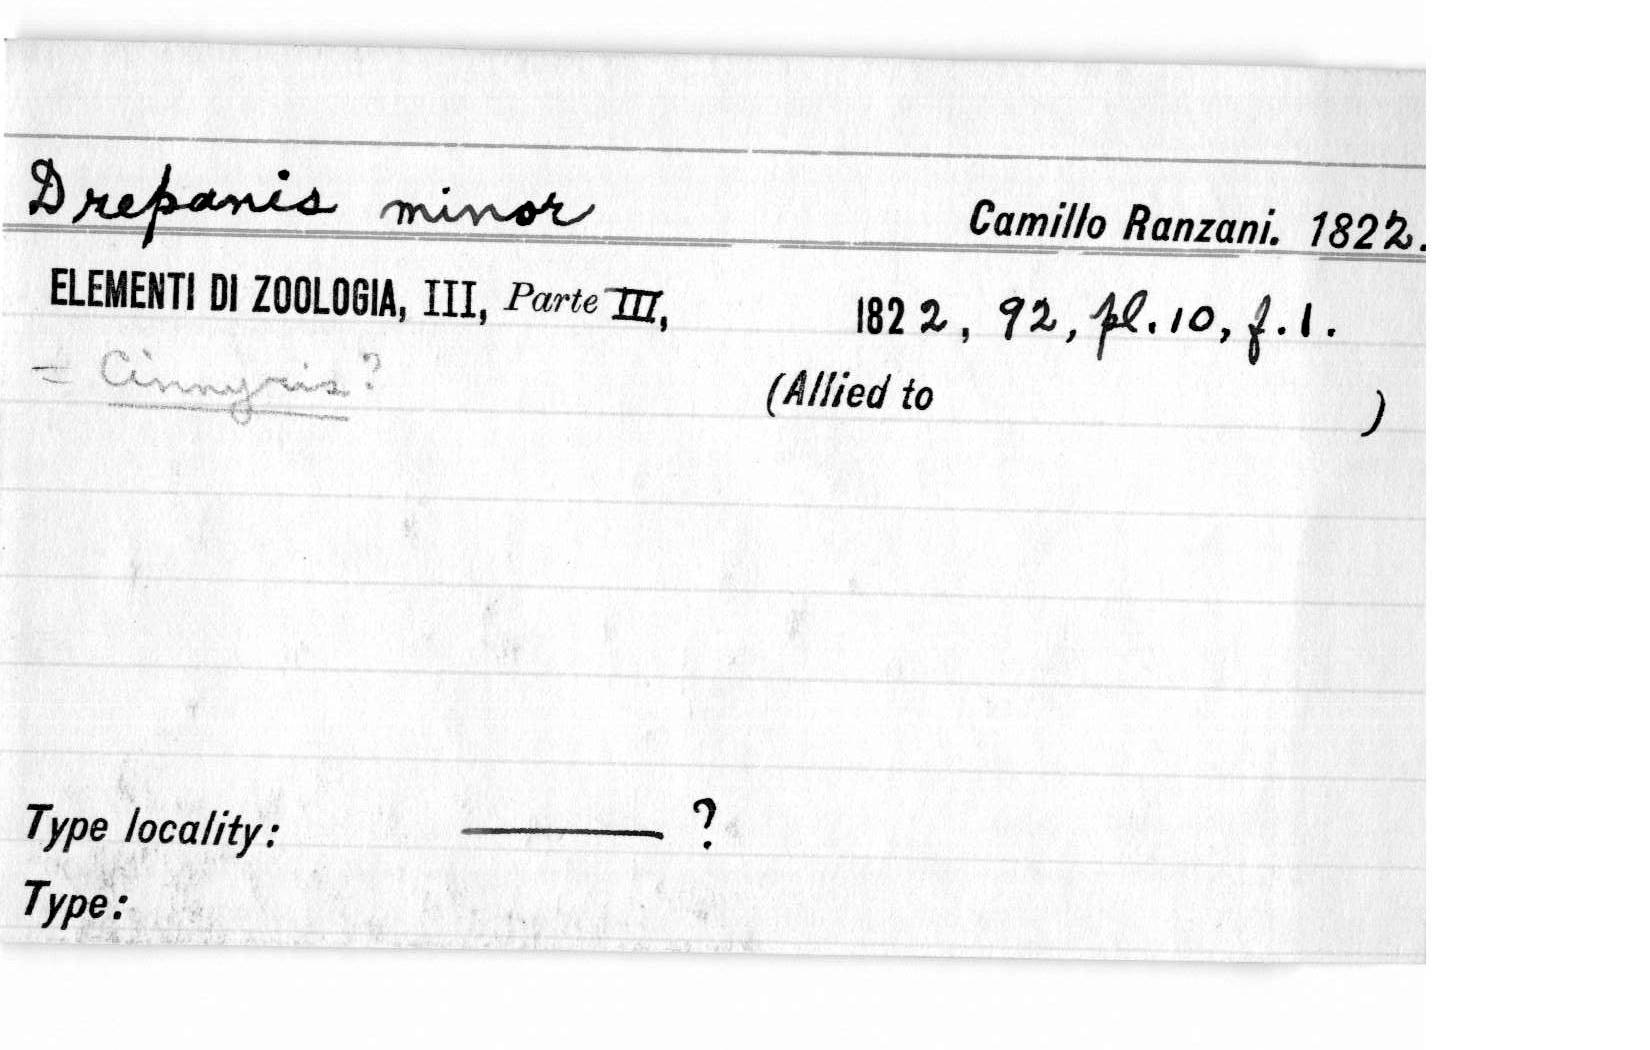 Drepanis minor Camillo Ranzani. 1822.
ELEMENTI DI ZOOLOGIA, III, Parte III, 1822, 92, pl. 10, f. 1.
= Cinnyris? (Allied to )
Type locality: ——— ?
Type: